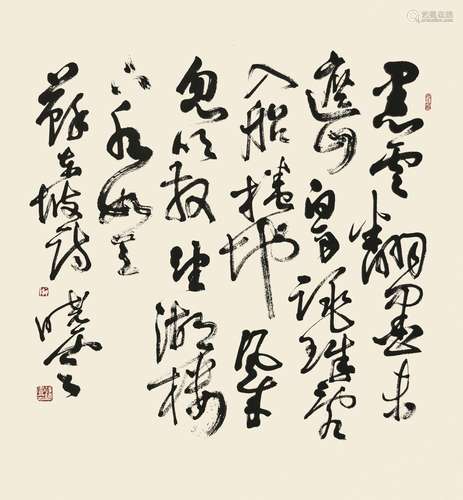 黑雲翻墨未
遮山白雨跳珠乱
入船捲地风来
忽吹散望湖楼
下水如天
蘇东坡诗 晓雲书